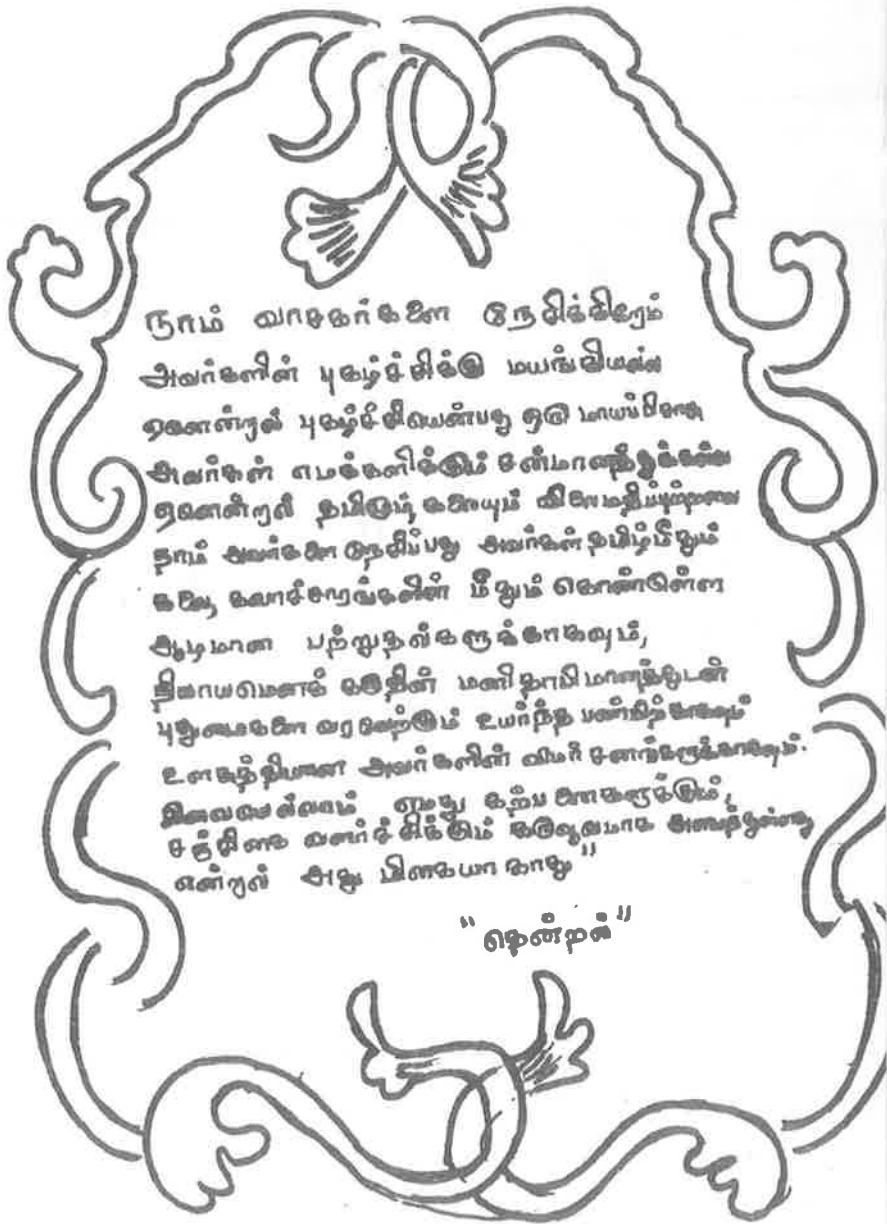 நாம் வாசகர்களை நேசிக்கிறோம்
அவர்களின் புகழ்ச்சிக்கு மயங்கியல்ல
ஏனென்றால் புகழ்ச்சியென்பது ஒரு மாயப்பிசாசு
அவர்கள் எமக்களிக்கும் சன்மானத்துக்கல்ல
ஏனென்றால் தமிழும், கலையும் விலைமதிப்பற்றவை
நாம் அவர்களை நேசிப்பது அவர்கள் தமிழ்மீதும்
கலை, கலாச்சாரங்களின் மீதும் கொண்டுள்ள
ஆழமான பற்றுதல்களுக்காகவும்,
நியாயமெனக் கருதின் மனிதாபிமானத்துடன்
புதுமைகளை வரவேற்கும் உயர்ந்த பண்பிற்காகவும்
உளசுத்தியான அவர்களின் விமர்சனங்களுக்காகவும்.
இவையெல்லாம் எமது கற்பனைகளுக்கும்,
சஞ்சிகை வளர்ச்சிக்கும் கருவூலமாக அமைந்துள்ளது
என்றால் அது மிகையாகாது"
"தென்றல்"